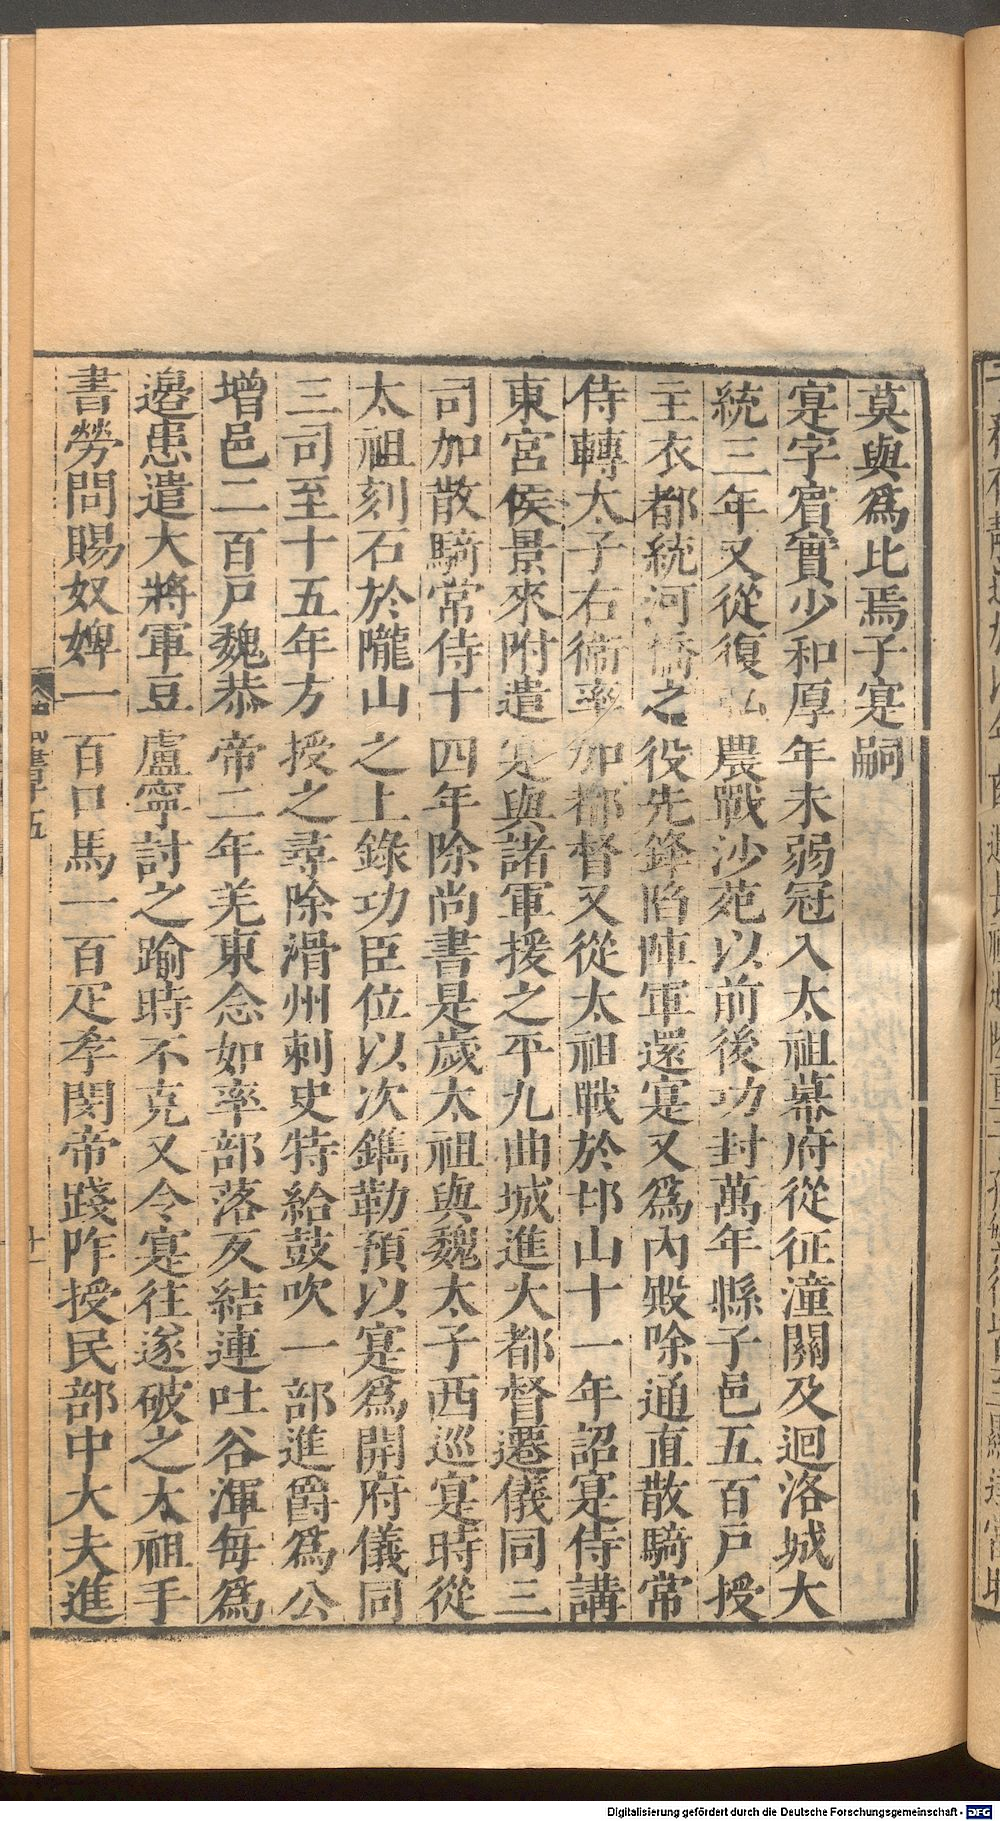 莫與爲比焉子寔嗣
寔字賓實少和厚年未弱冠入太祖幕府從征潼關及迴洛城大
統三年又從復弘農戰沙苑以前後功封萬年縣子邑五百戸授
主衣都統河橋之役先鋒陷陣軍還寔又爲內殿除通直散騎常
侍轉太子右衞率加都督又從太祖戰於邙山十一年詔寔侍講
東宮侯景來附遣寔與諸軍援之平九曲城進大都督遷儀同三
司加散騎常侍十四年除尚書是歲太祖與魏太子西巡寔時從
太祖刻石於隴山之上錄功臣位以次鐫勒預以寔爲開府儀同
三司至十五年方授之尋除滑州刺史特給鼓吹一部進爵爲公
增邑二百戸魏恭帝二年羌東念如率部落反結連吐谷渾每爲
邊患遣大將軍豆盧寧討之踰時不克又令寔往遂破之太祖手
書勞問賜奴婢一百口馬一百疋孝閔帝踐阼授民部中大夫進
十一
Digitalisierung gefördert durch die Deutsche Forschungsgemeinschaft - DFG